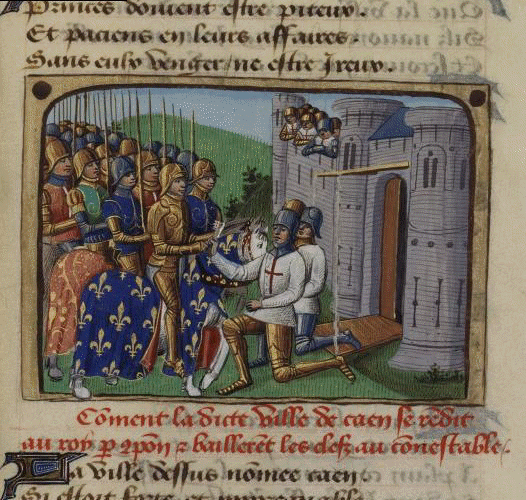 Princes doiuent estre piteux.
Et paciens en leurs affaires.
Sans eulx venger ne estre Jreux.
Cõment la dicte ville de caen se rẽdit
au roy p ꝯpõn & baillerẽt les clefz au conestable.
La ville dessus nõmee caen
Si estoit forte et